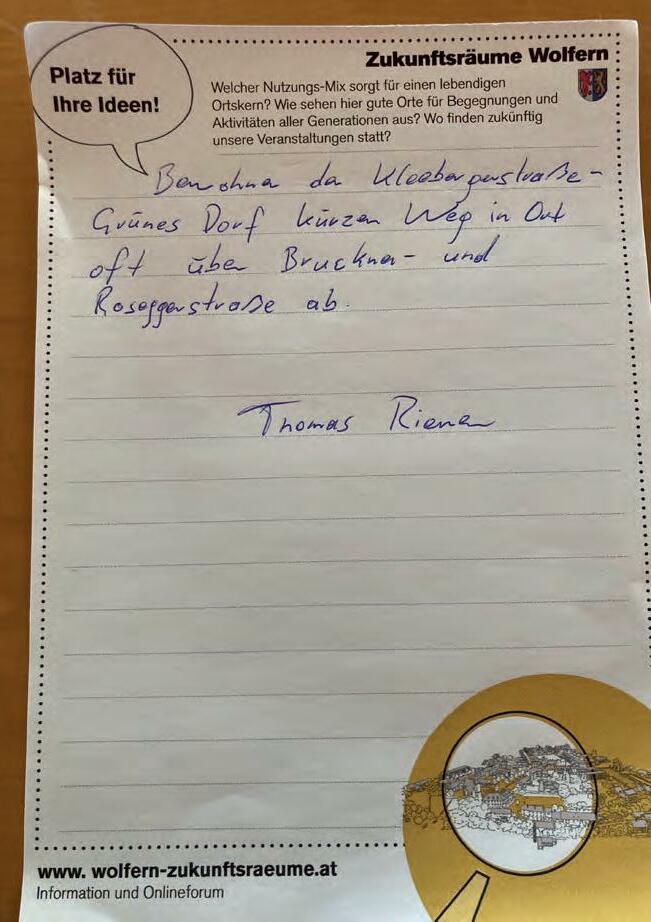 Platz für
Ihre Ideen!
Zukunftsräume Wolfern
Welcher Nutzungs-Mix sorgt für einen lebendigen
Ortskern? Wie sehen hier gute Orte für Begegnungen und
Aktivitäten aller Generationen aus? Wo finden zukünftig
unsere Veranstaltungen statt?
Bewohner der Kleebergerstraße-
Grünes Dorf kürzen Weg in Ort
oft über Bruckner- und
Roseggerstraße ab.
Thomas
www. wolfern-zukunftsraeume.at
Information und Onlineforum